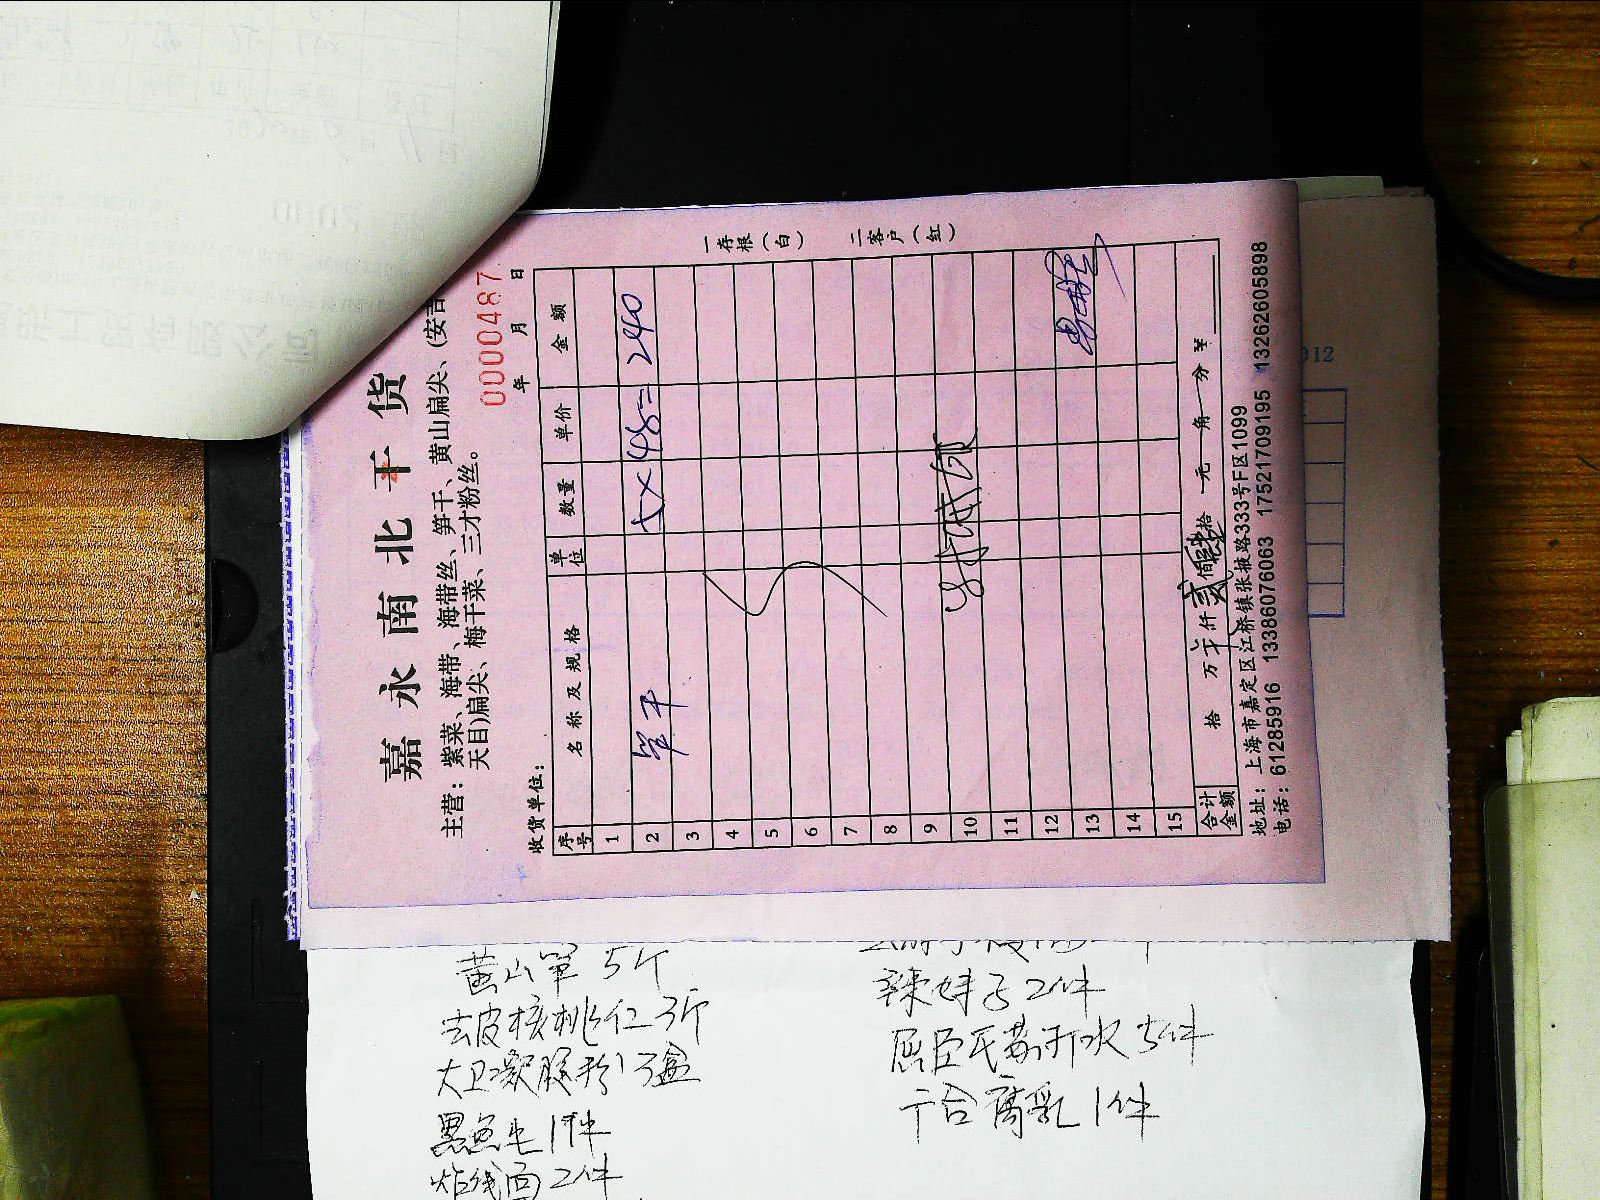 嘉永南北干货
主营：紫菜、海带、海带丝、笋干、黄山扁尖、(安吉
天目)扁尖、梅干菜、三才粉丝。
0000487
收货单位：
年 月 日
序号 名称及规格 单位 数量 单价 金额
1
2 笋干 5×48= 240
3
4
5
6
7
8
9
10
11
12
13
14
15
合计金额 拾 万 仟 贰佰 肆拾 元 角 分 ¥
地址：上海市嘉定区江桥镇张掖路333号F区1099
电话：61285916 13386076063 17521709195 13262605898
一存根(白) 二客户(红)
012
黄山笋 5斤
去皮核桃仁 3斤
大卫凝胶粉 3盒
黑鱼 1件
炸线面 2件
辣妹子 2件
屈臣氏苏打水 5件
六合腐乳 1件